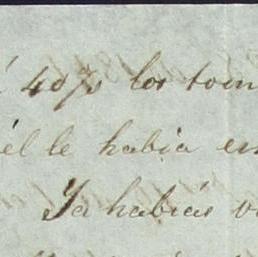 á 40 ps los tom
él le habia en
Ya habias v